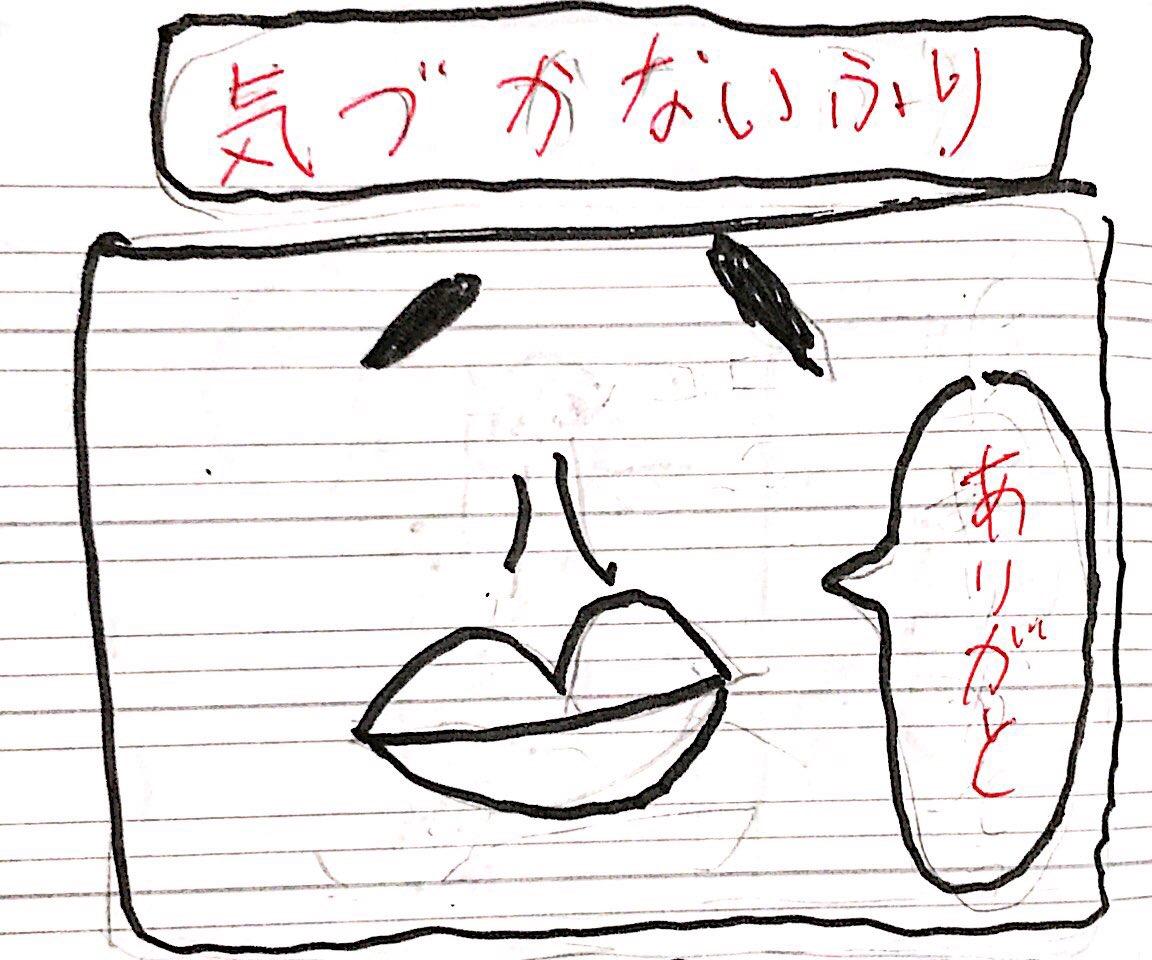 気づかないふり
ありがと